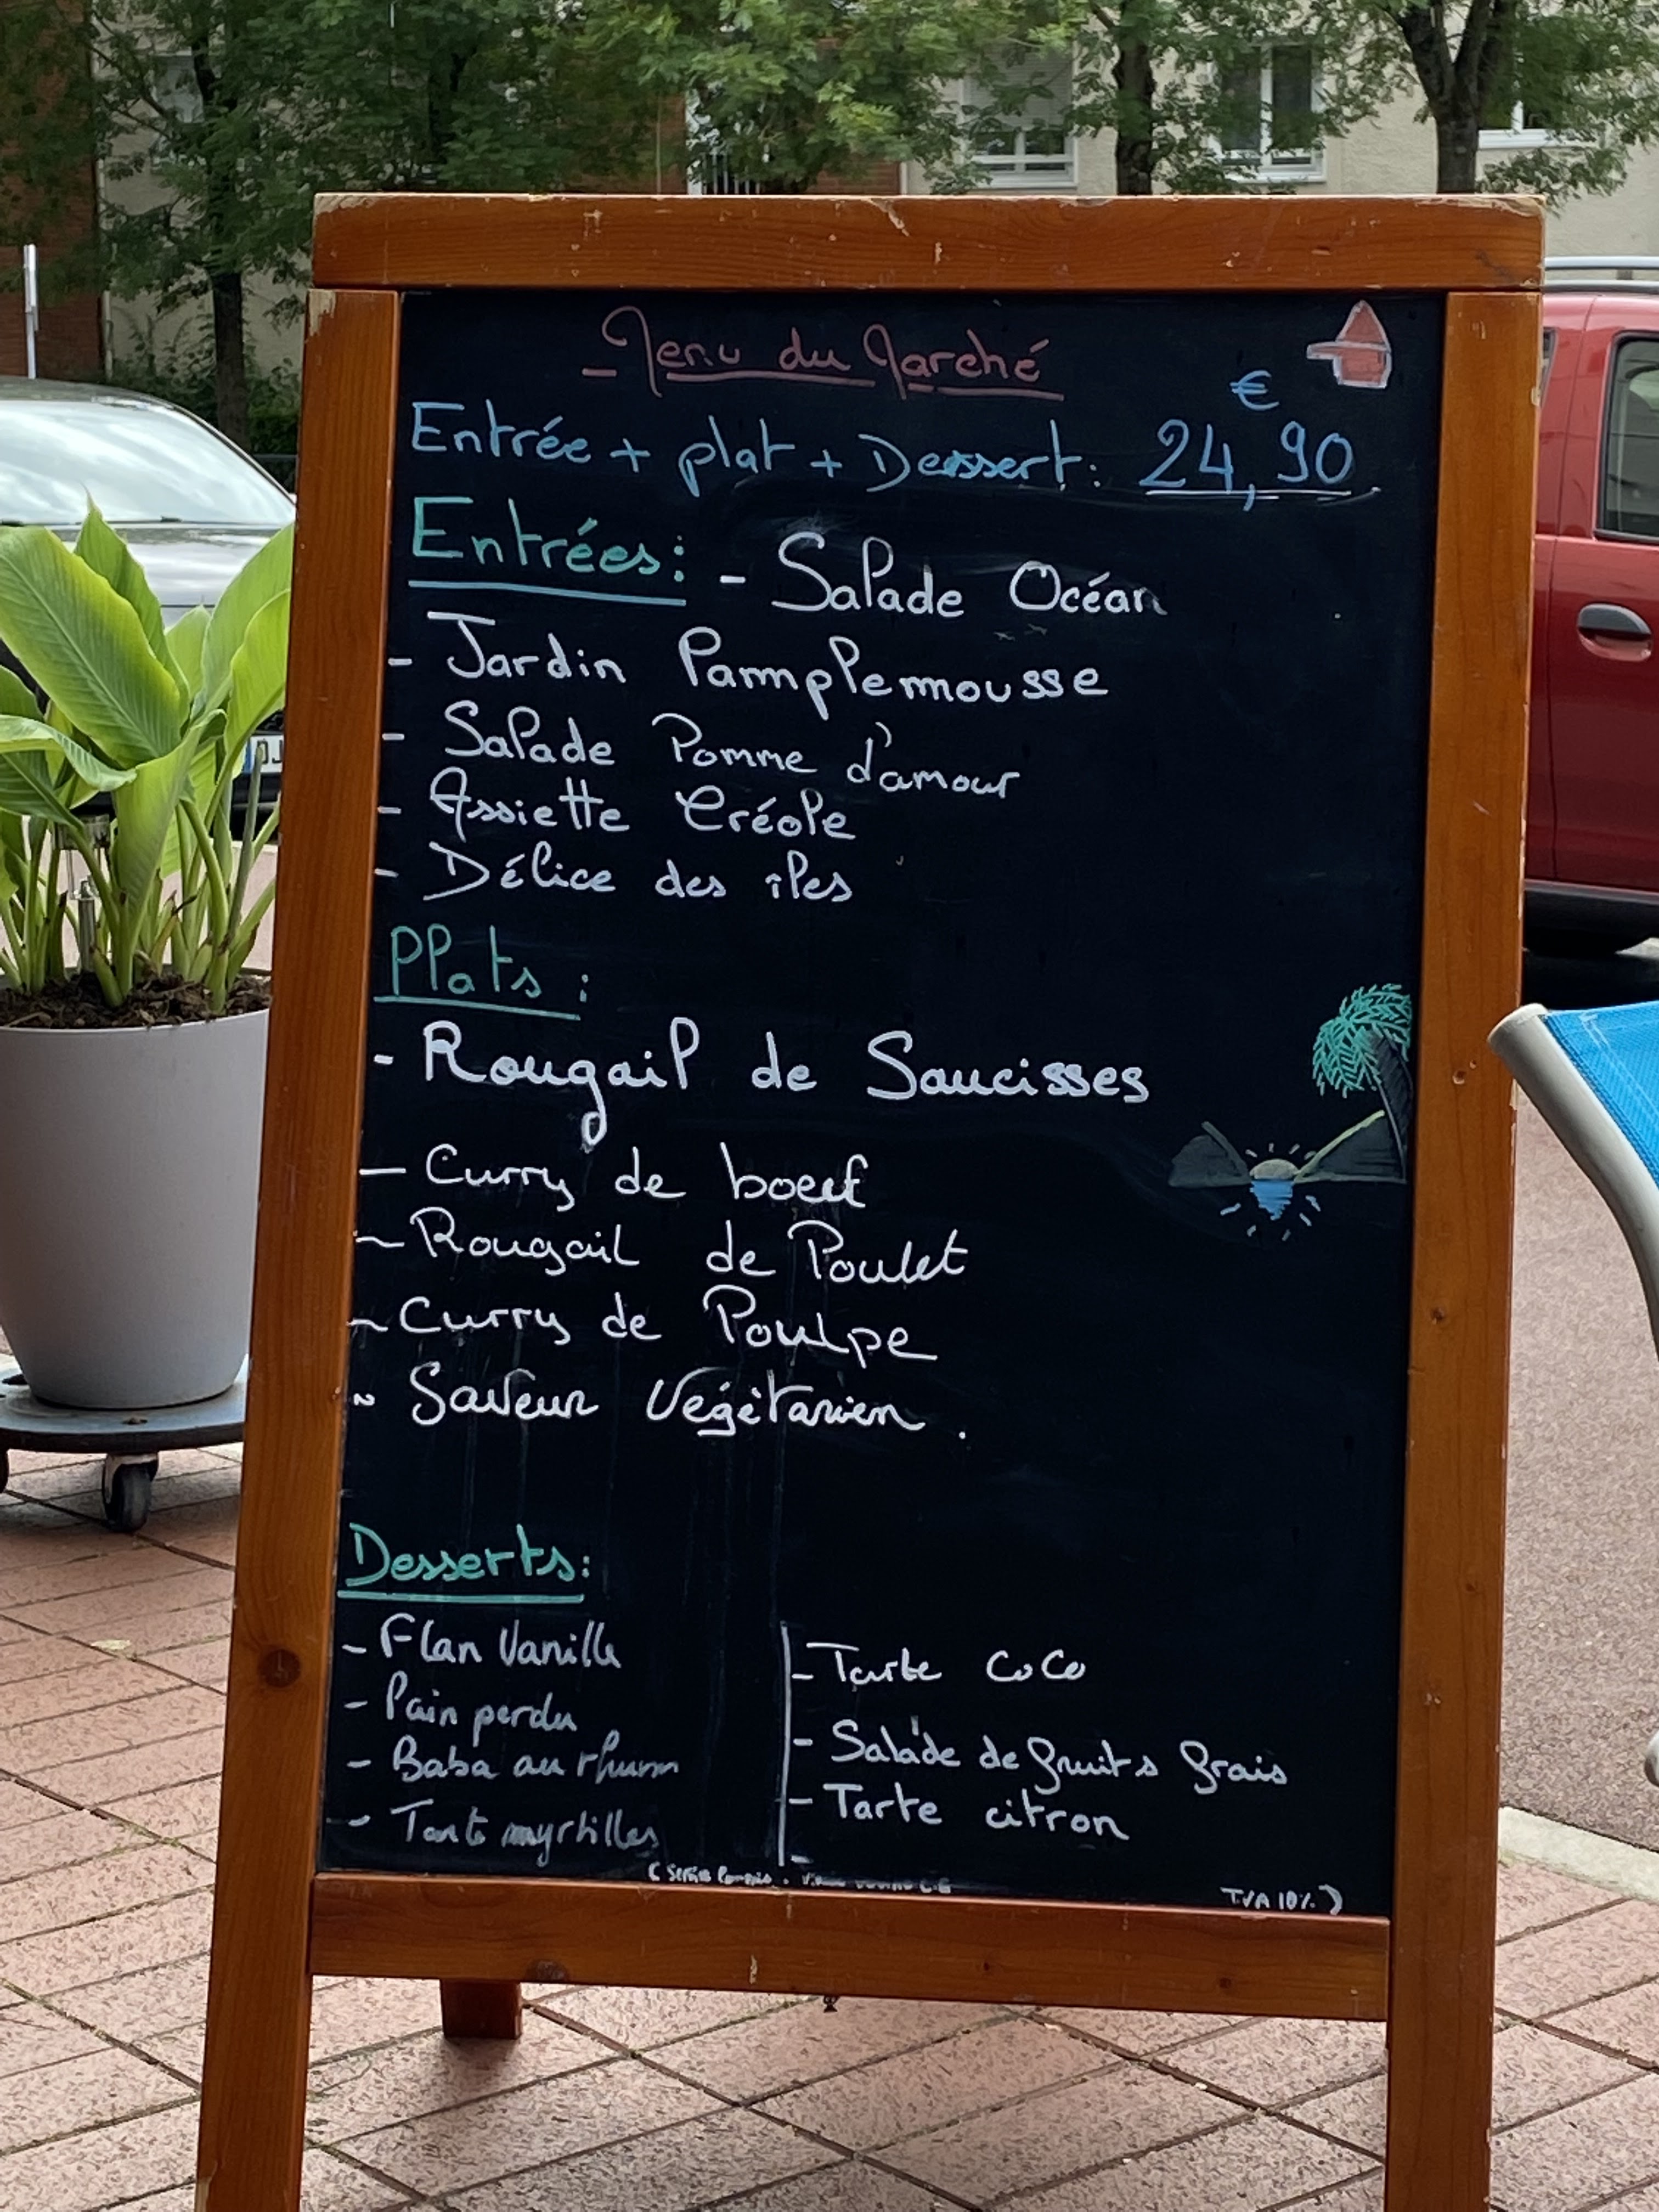 Menu du Marché
€
Entrée + plat + Dessert: 24,90
Entrées: - Salade Océan
- Jardin Pamplemousse
- Salade Pomme d'amour
- Assiette Créole
- Délice des îles
Plats :
- Rougail de Saucisses
- Curry de boeuf
- Rougail de Poulet
- Curry de Poulpe
~ Saveur Végétarien.
Desserts:
- Flan Vanille
- Pain perdu
- Baba au rhum
- Tart myrtilles
- Tarte CoCo
- Salade de fruits frais
- Tarte citron
TVA 10%)